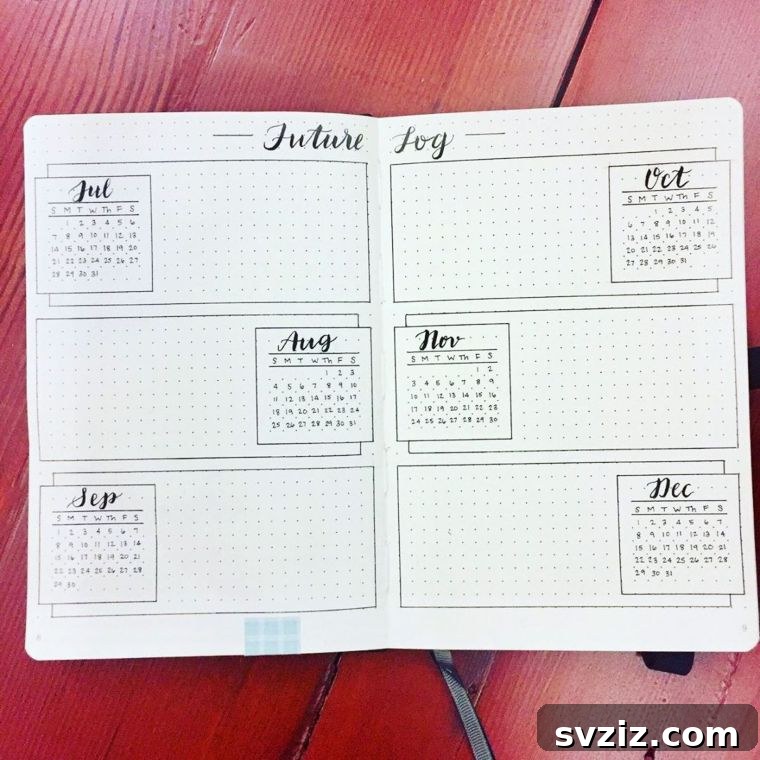 Future Log
Jul
S M T W Th F S
1 2 3 4 5 6
7 8 9 10 11 12 13
14 15 16 17 18 19 20
21 22 23 24 25 26 27
28 29 30 31
Aug
S M T W Th F S
1 2 3
4 5 6 7 8 9 10
11 12 13 14 15 16 17
18 19 20 21 22 23 24
25 26 27 28 29 30 31
Sep
S M T W Th F S
1 2 3 4 5 6 7
8 9 10 11 12 13 14
15 16 17 18 19 20 21
22 23 24 25 26 27 28
29 30
8
Oct
S M T W Th F S
1 2 3 4 5
6 7 8 9 10 11 12
13 14 15 16 17 18 19
20 21 22 23 24 25 26
27 28 29 30 31
Nov
S M T W Th F S
1 2
3 4 5 6 7 8 9
10 11 12 13 14 15 16
17 18 19 20 21 22 23
24 25 26 27 28 29 30
Dec
S M T W Th F S
1 2 3 4 5 6 7
8 9 10 11 12 13 14
15 16 17 18 19 20 21
22 23 24 25 26 27 28
29 30 31
9
svziz.com